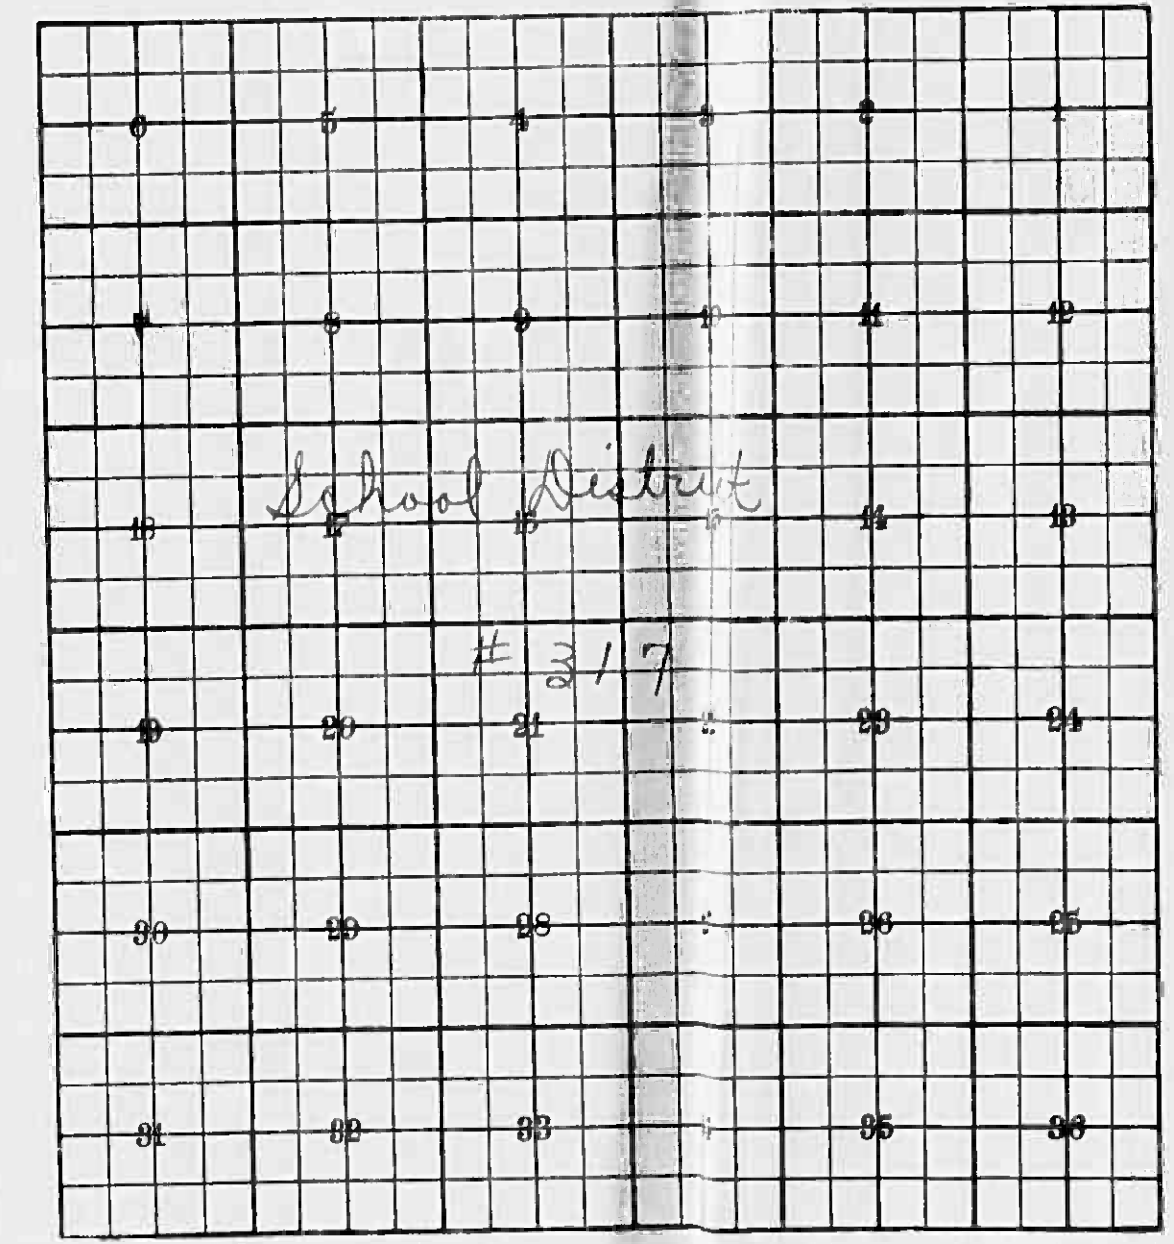 6 5 4 3 2 1
7 8 9 10 11 12
School District
18 17 16 15 14 13
# 317
19 20 21 23 24
30 29 28 26 25
31 32 33 35 36